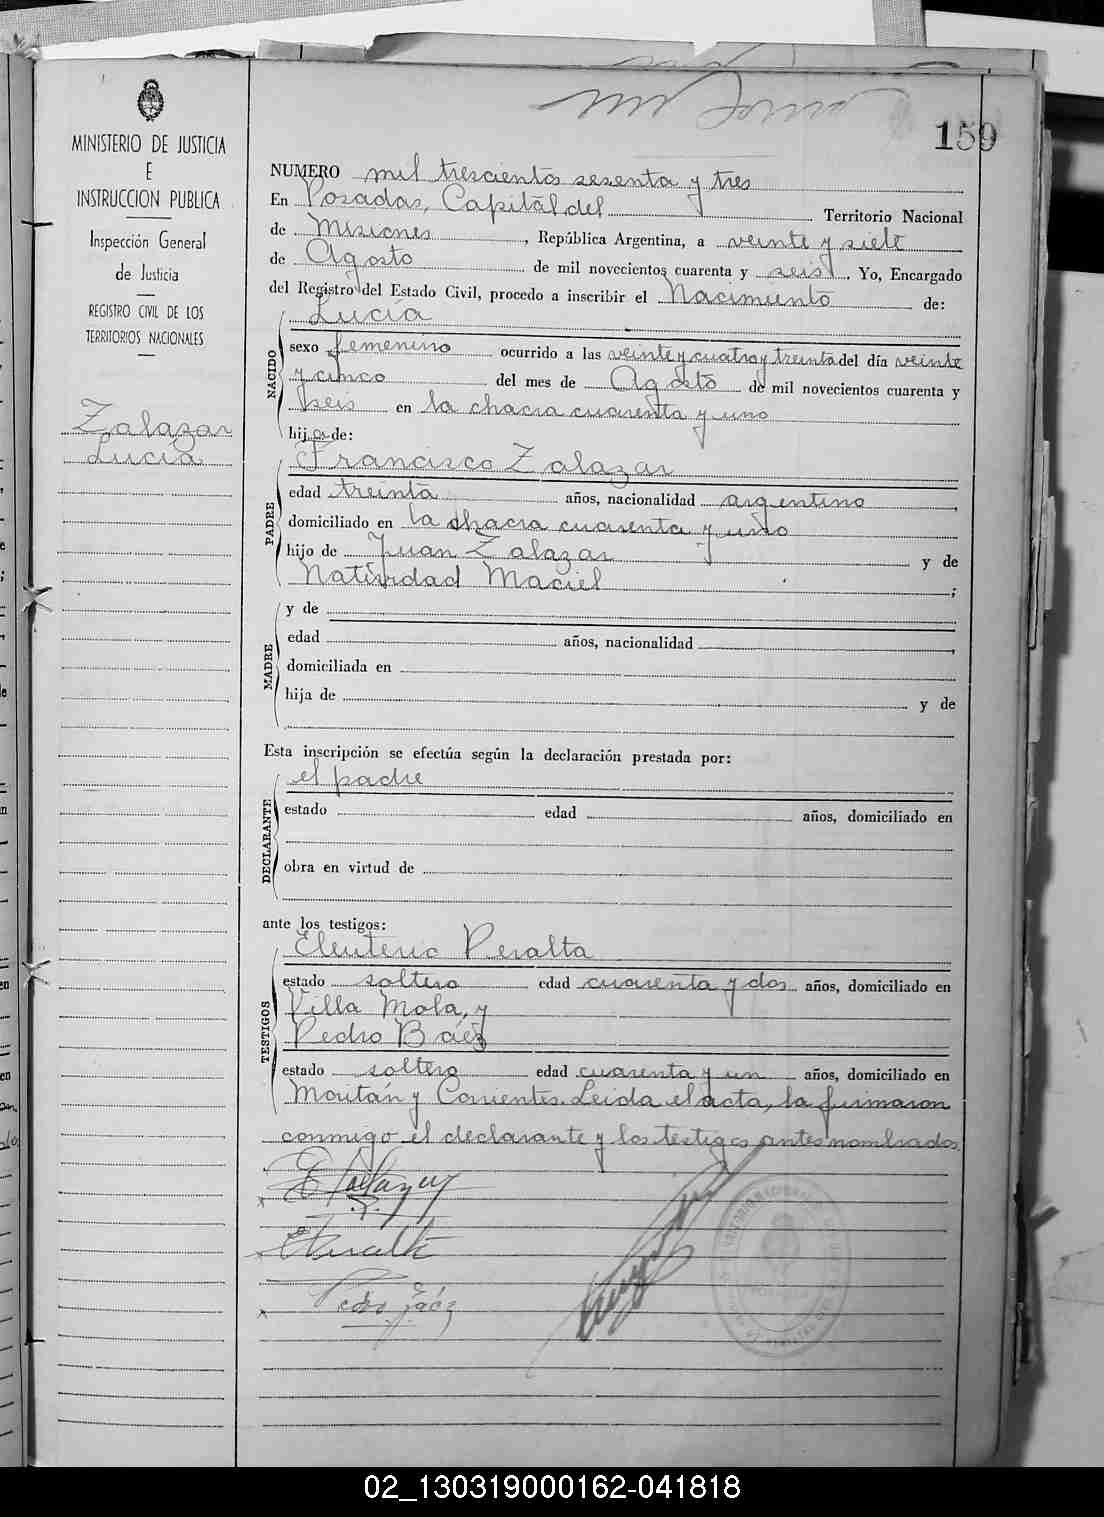 159
MINISTERIO DE JUSTICIA
E
INSTRUCCION PUBLICA
Inspección General
de Justicia
REGISTRO CIVIL DE LOS
TERRITORIOS NACIONALES
Zalazar
Lucía
NUMERO mil trescientos sesenta y tres
En Posadas, Capital del Territorio Nacional
de Misiones, República Argentina, a veinte y siete
de Agosto de mil novecientos cuarenta y seis. Yo, Encargado
del Registro del Estado Civil, procedo a inscribir el Nacimiento de:
Lucía
NACIDO
sexo femenino ocurrido a las veinte y cuatro y treinta del día veinte
y cinco del mes de Agosto de mil novecientos cuarenta y
seis en la chacra cuarenta y uno
hija de:
Francisco Zalazar
PADRE
edad treinta años, nacionalidad argentino,
domiciliado en la chacra cuarenta y uno
hijo de Juan Zalazar y de
Natividad Maciel;
MADRE
y de
edad años, nacionalidad,
domiciliada en
hija de y de
Esta inscripción se efectúa según la declaración prestada por:
el padre
DECLARANTE
estado edad años, domiciliado en
obra en virtud de
ante los testigos:
Eleuterio Peralta
TESTIGOS
estado soltero edad cuarenta y dos años, domiciliado en
Villa Mola, y
Pedro Báez
estado soltero edad cuarenta y un años, domiciliado en
Moritán y Corrientes. Leida el acta, la firmaron
conmigo el declarante y los testigos antes nombrados.
EPeralta
Pedro Báez
02_130319000162-041818